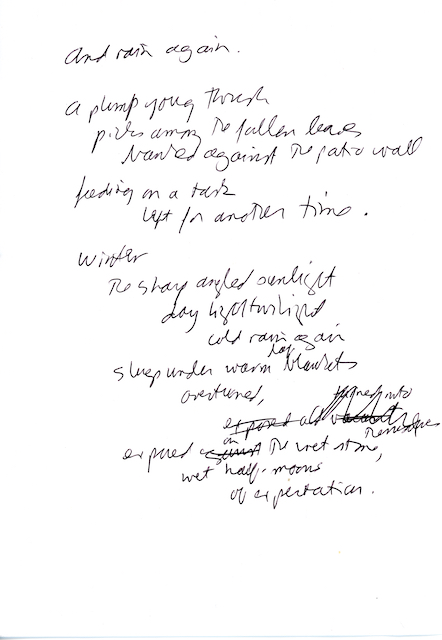 And rain again.
a plump young thrush
picks among the fallen leaves
banked against the patio wall
feeding on a task
left for another time.
Winter
The sharp angled sunlight
day light twilight
cold rain again
leaf
sleep under warm blankets
overturned,
turned into
exposed old
themselves
on
exposed against the wet stone,
wet half-moons
of expectation.